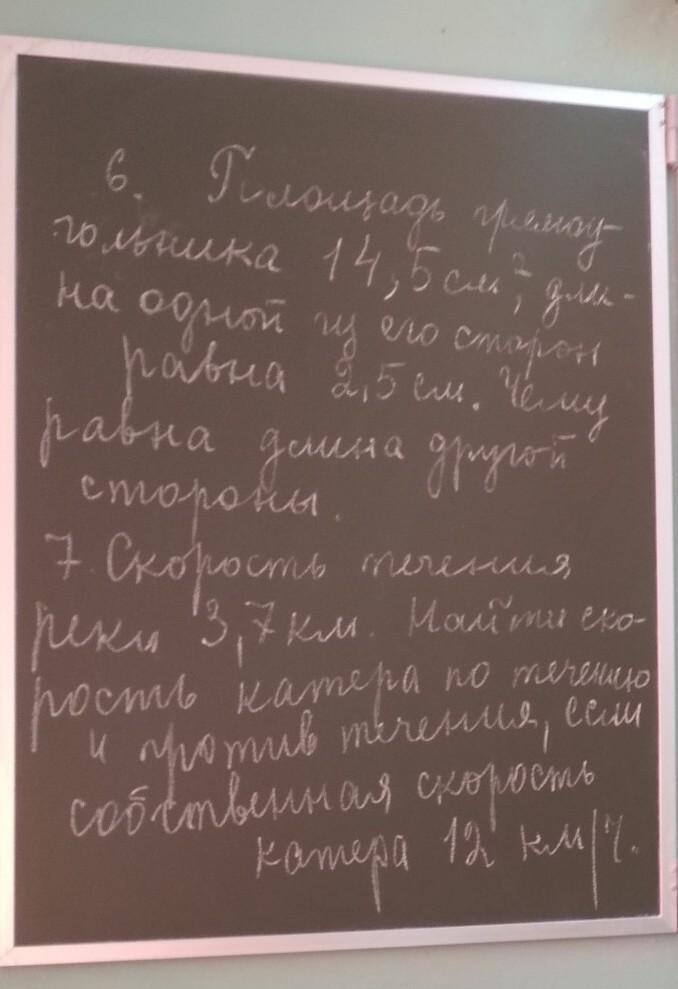 6. Площадь прямоу-
гольника 14,5 см², дли-
на одной из его сторон
равна 2,5 см. Чему
равна длина другой
стороны.
7. Скорость течения
реки 3,7 км. Найти ско-
рость катера по течению
и против течения, если
собственная скорость
катера 12 км/ч.